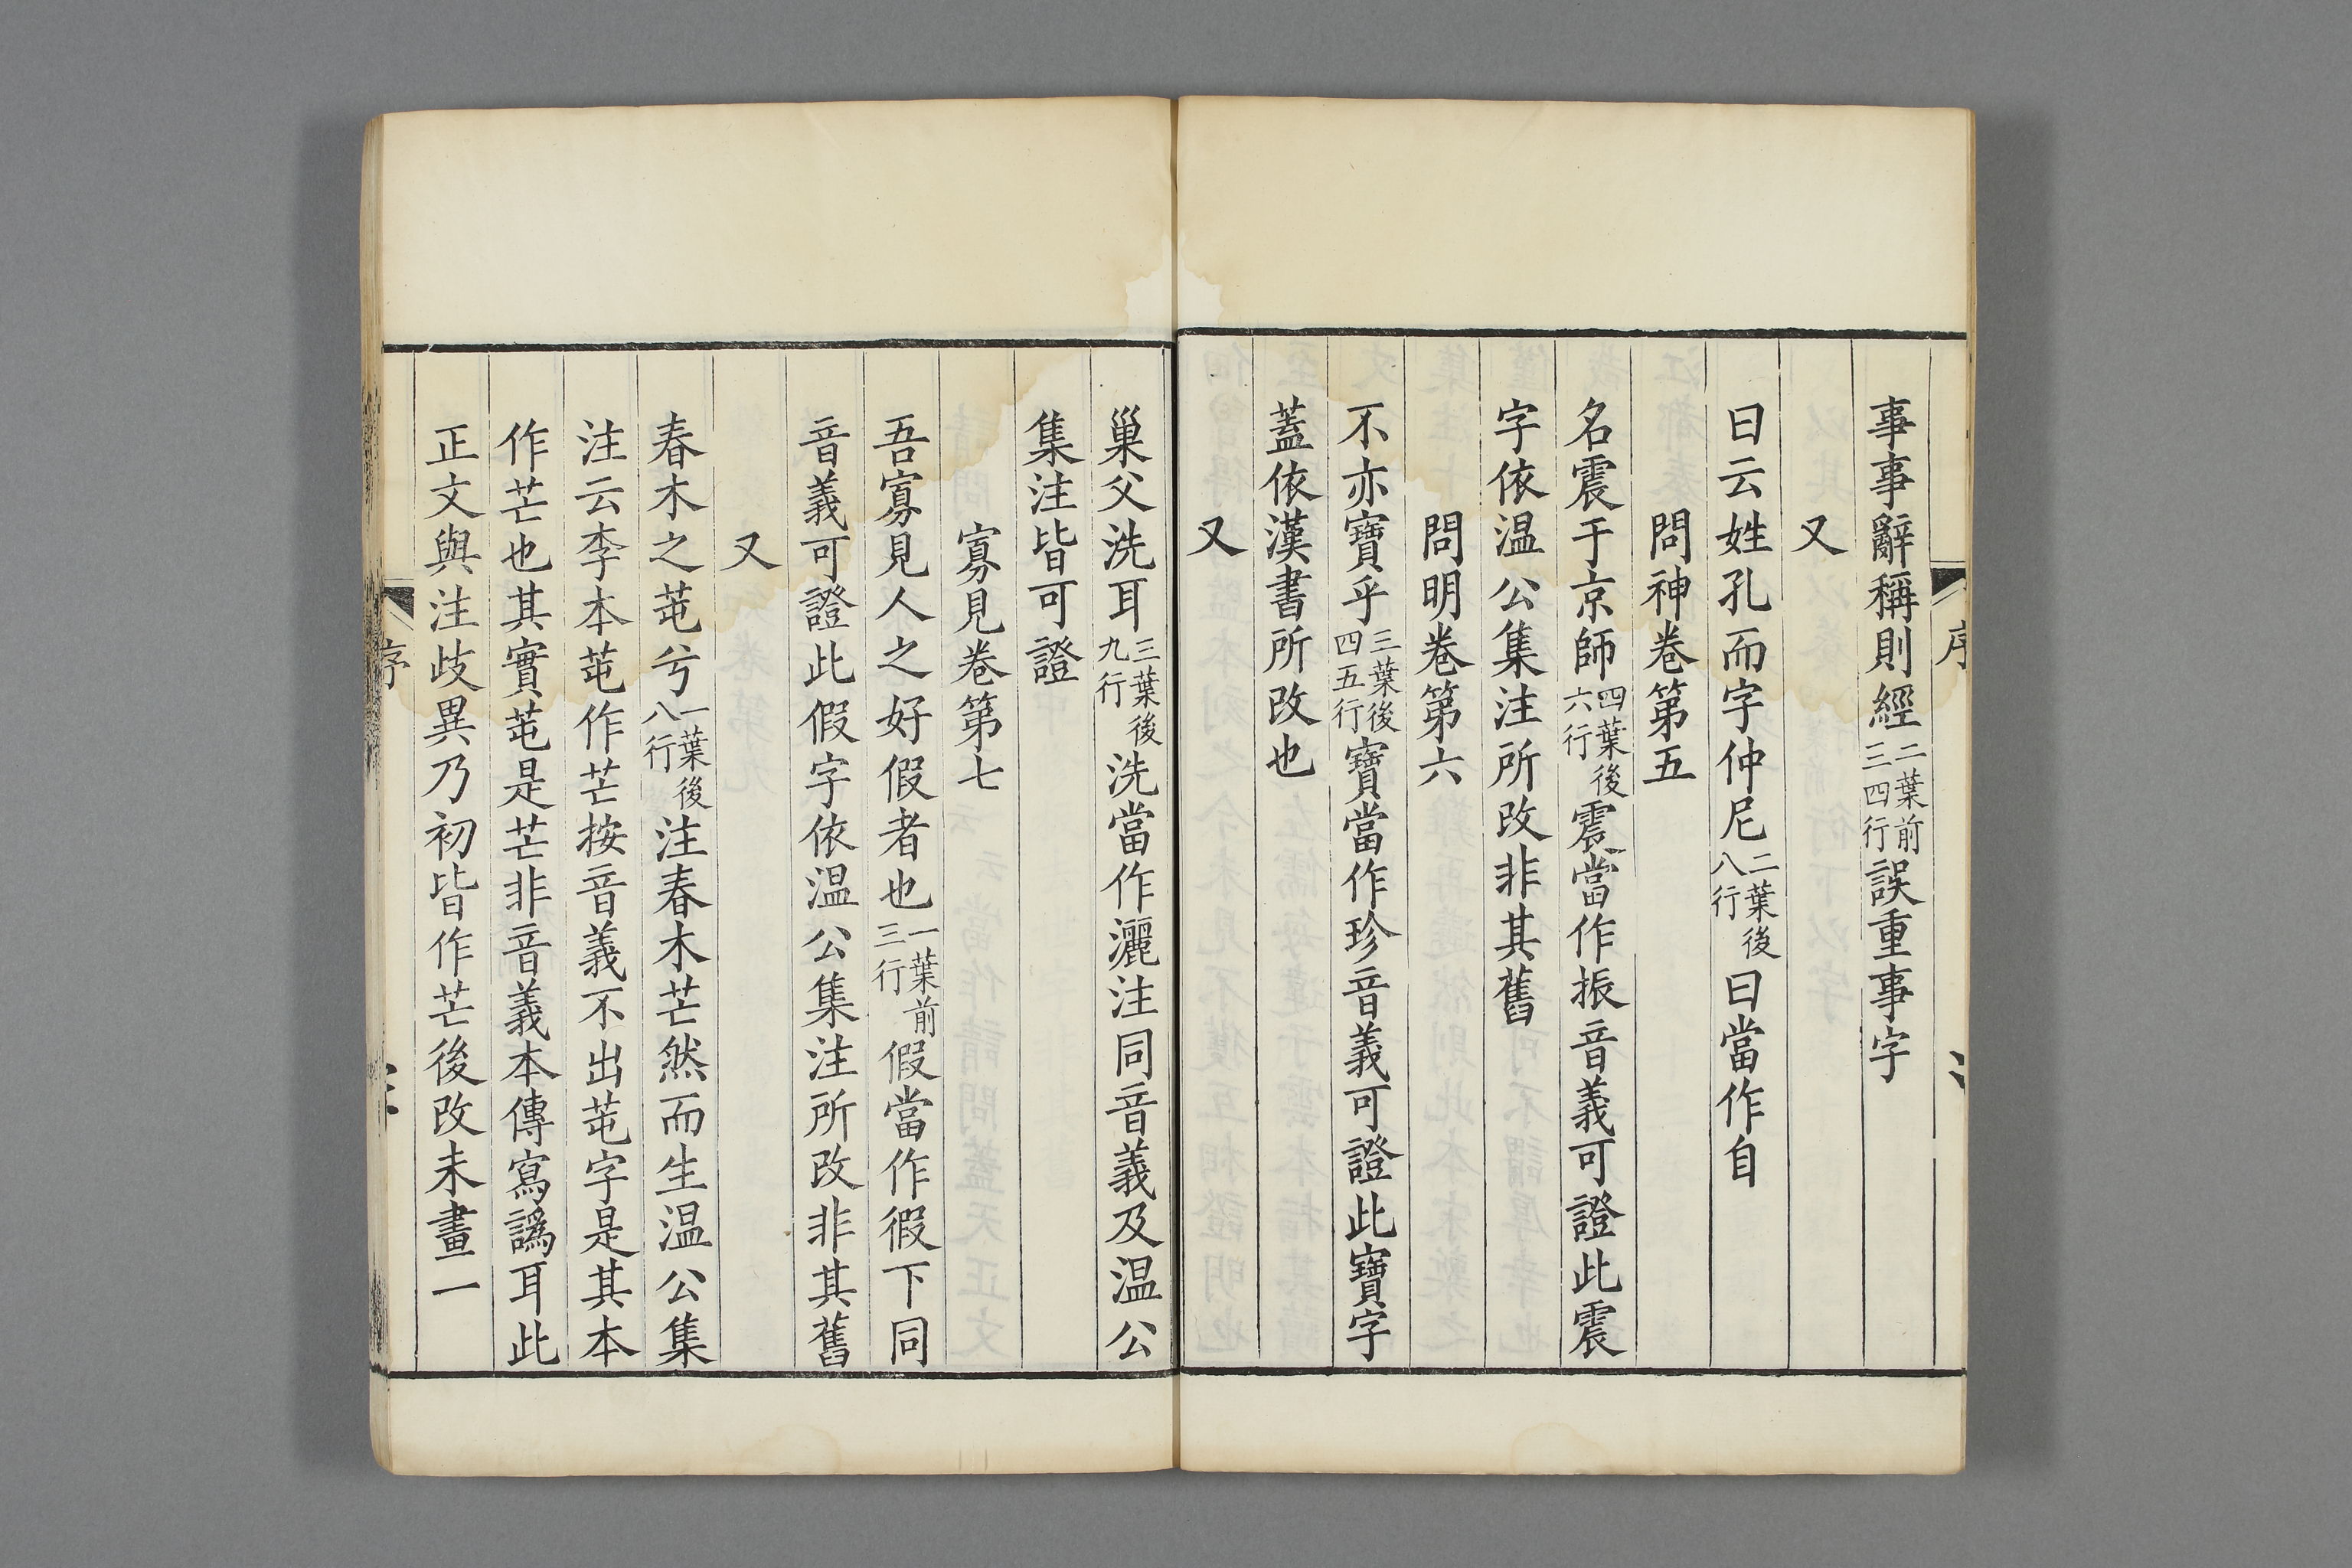 事事辭稱則經二葉前三四行誤重事字
又
曰云姓孔而字仲尼二葉後八行曰當作自
問神卷第五
名震于京師四葉後六行震當作振音義可證此震
字依温公集注所改非其舊
問明卷第六
不亦寶乎三葉後四五行寶當作珍音義可證此寶字
蓋依漢書所改也
又
巢父洗耳三葉後九行洗當作灑注同音義及温公
集注皆可證
寡見卷第七
吾寡見人之好假者也一葉前三行假當作徦下同
音義可證此假字依温公集注所改非其舊
又
春木之芚兮一葉後八行注春木芒然而生温公集
注云李本芚作芒按音義不出芚字是其本
作芒也其實芚是芒非音義本傳寫譌耳此
正文與注歧異乃初皆作芒後改未畫一
序